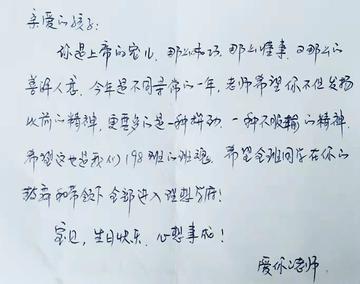 亲爱的孩子:
你是上帝的宠儿,那么成功,那么懂事,又那么的
善解人意,今年是不同寻常的一年,老师希望你不但发扬
以前的精神,更要多的是一种拼劲,一种不服输的精神,
希望这也是我们198班的班魂,希望全班同学在你的
鼓舞和带领下全部进入理想学府!
宝贝,生日快乐,心想事成!
爱你的老师